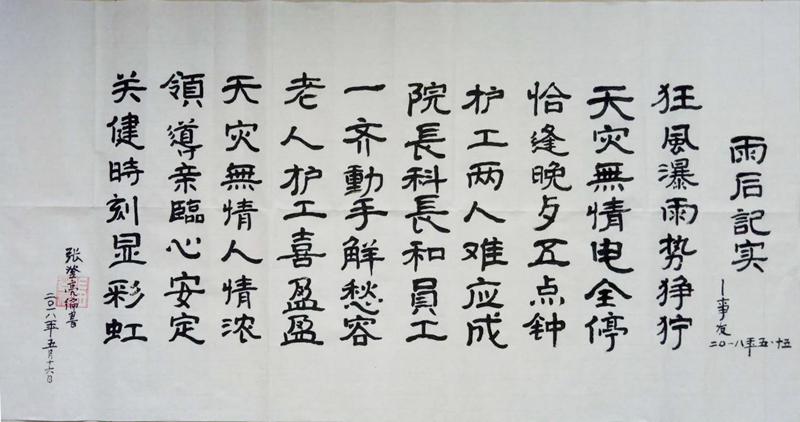 雨后記实
—事发
二〇一八年五·十五
狂風瀑雨势狰狞
天灾無情电全停
恰逢晚歺五点钟
护工两人难应成
院長科長和員工
一齐動手解愁容
老人护工喜盈盈
天灾無情人情浓
領導亲臨心安定
关健時刻显彩虹
张澄亮 書
二〇一八年五月十六日